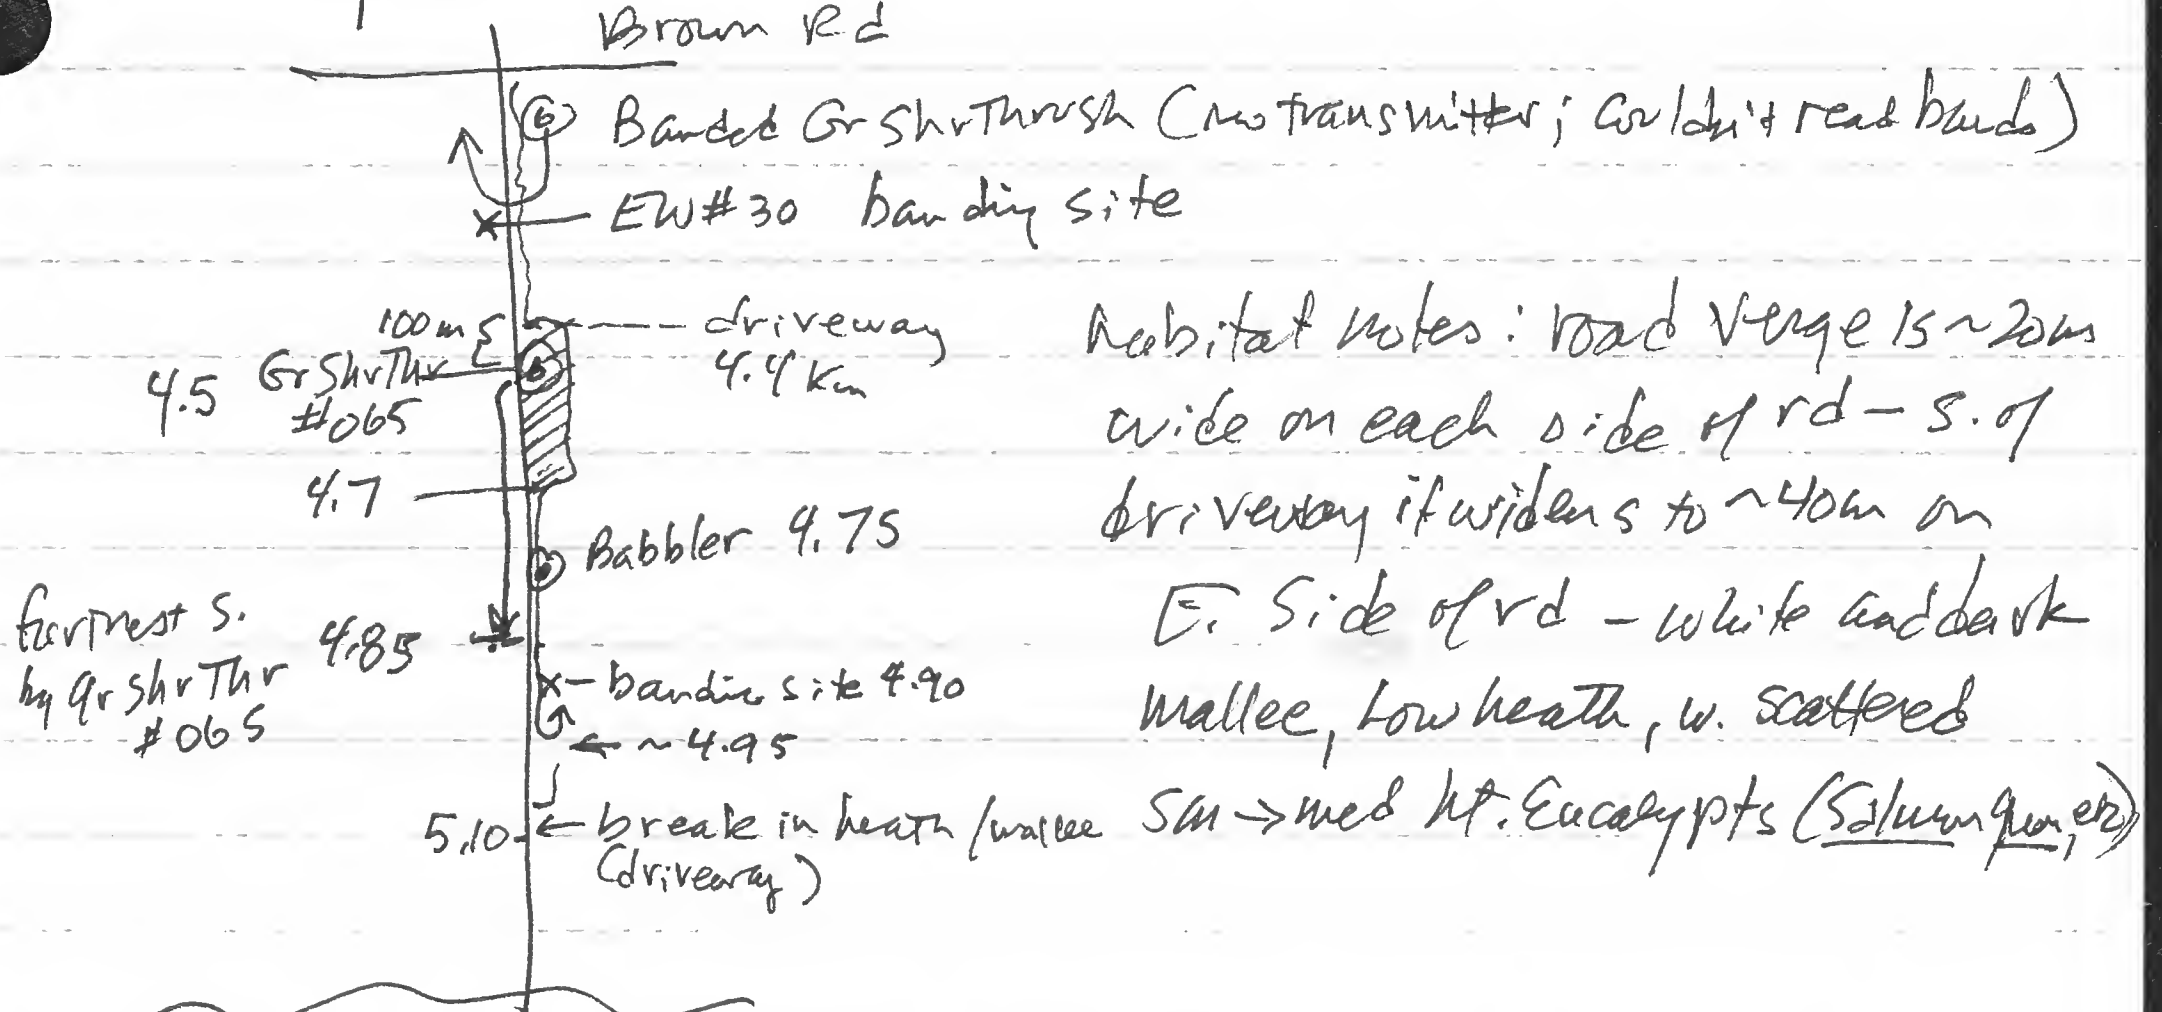 Brown Rd
6 Banded Gr ShrThrush (no transmitter; couldn't read bands)
EW#30 banding site
100m
driveway
4.4 km
4.5 GrShrThr
#065
4.7
Babbler 4.75
farthest S.
by GrShrThr
#065
4.85
banding site 4.90
← ~4.95
5.10
← break in heath/mallee
(driveway)
habitat notes: road verge is ~20m
wide on each side of rd – S. of
driveway it widens to ~40m on
E. Side of rd – white and dark
mallee, Low heath, w. scattered
Sm → med ht. Eucalypts (Salmon gum, etc)